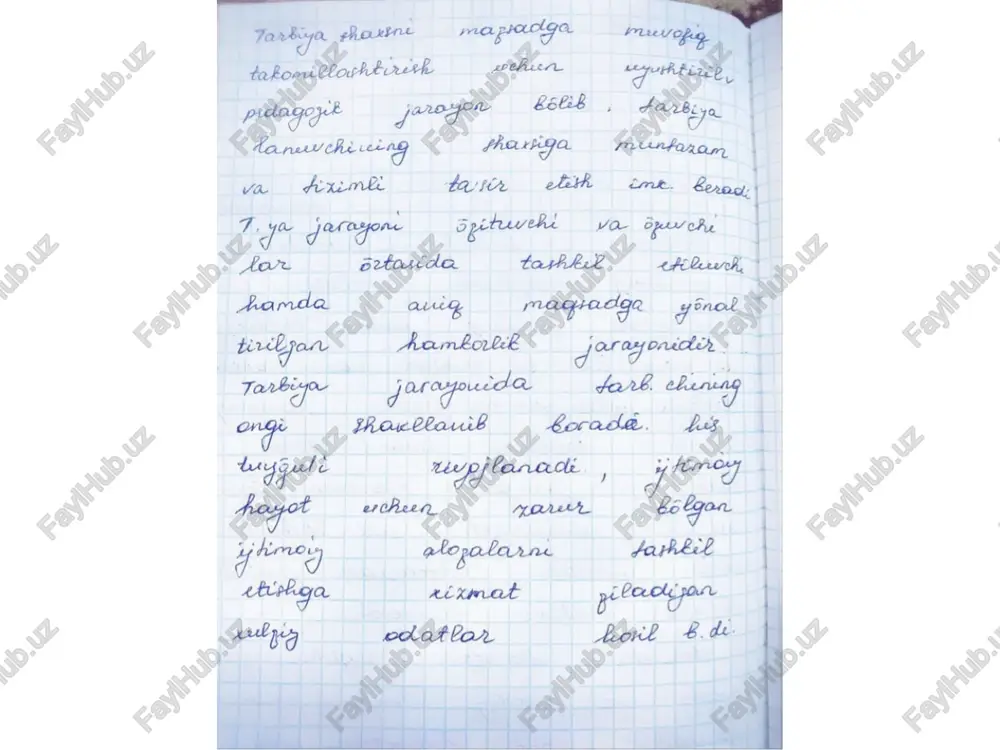 Tarbiya shaxsni maqsadga muvofiq
takomillashtirish uchun uyushtirilu
pidagogik jarayon bōlib, tarbiya
lanuvchining shaxsiga muntazam
va tizimli ta'sir etish imk. beradi
T. ya jarayoni ōqituvchi va ōquvchi
lar ōrtasida tashkil etiluvchi
hamda aniq maqsadga yōnal
tirilgan hamkorlik jarayonidir.
Tarbiya jarayonida tarb. chining
ongi shakllanib boradi. his
tuyğuli rivojlanadi, ijtimoiy
hayot uchun zarur bōlgan
ijtimoiy aloqalarni tashkil
etishga xizmat qiladigan
xulqiy odatlar hosil b. di.
FaylHub.uz